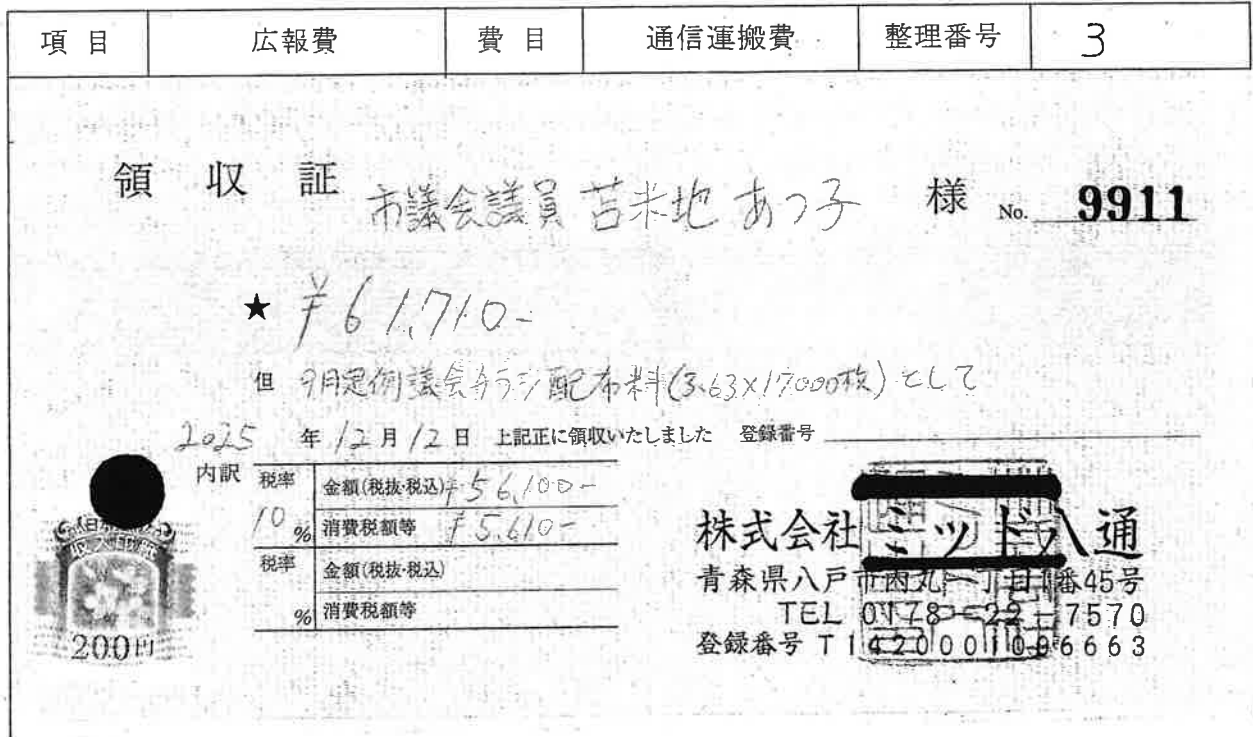 項目 広報費 費目 通信運搬費 整理番号 3
領収証 市議会議員 苫米地 あつ子 様 No. 9911
★ ¥61,710-
但 9月定例議会チラシ配布料(3.63×17000枚)として
2025年12月12日 上記正に領収いたしました 登録番号
内訳 税率 金額(税抜・税込) ¥56,100-
10% 消費税額等 ¥5,610-
税率 金額(税抜・税込)
% 消費税額等
収入印紙
200円
株式会社 ミッド八通
青森県八戸市内丸一丁目1番45号
TEL 0178-22-7570
登録番号 T1420001006663